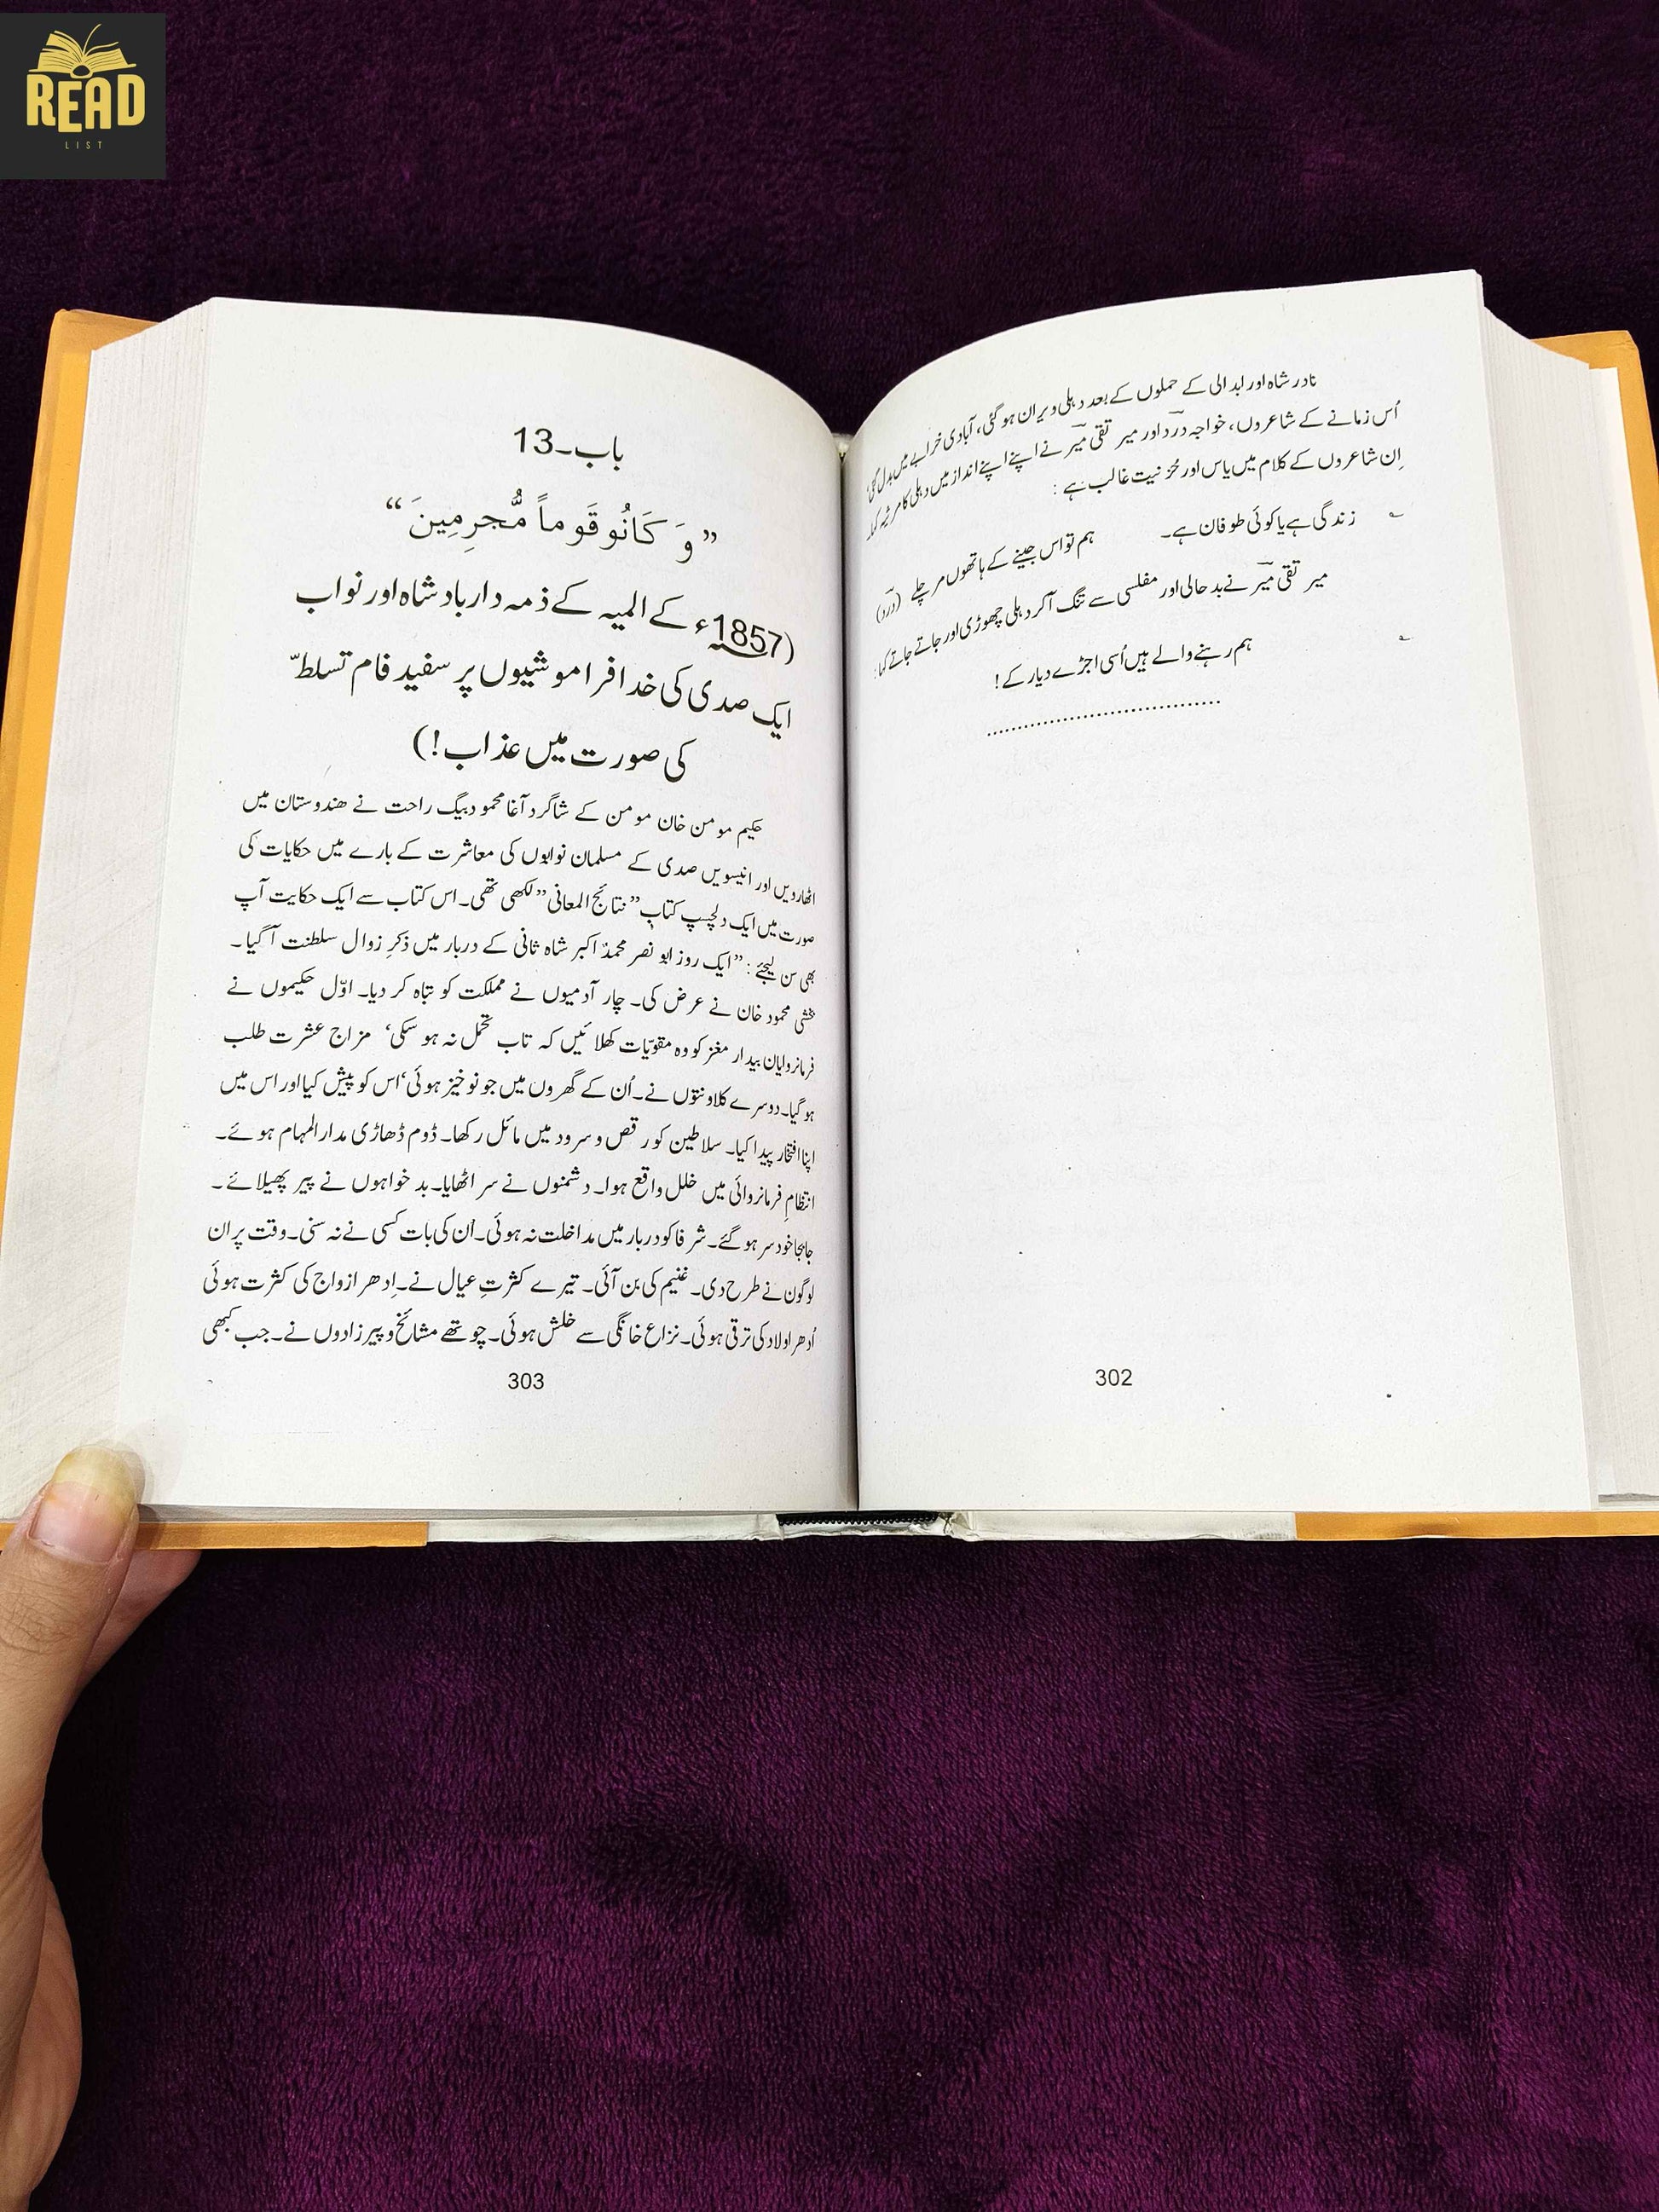 READ
LIST
نادر شاہ اور ابدالی کے حملوں کے بعد دہلی ویران ہو گئی، آبادی خرابے میں بدل گئی،
اُس زمانے کے شاعروں، خواجہ درد اور میر تقی میر نے اپنے اپنے انداز میں دہلی کا مرثیہ کہا۔
اِن شاعروں کے کلام میں یاس اور محزنیت غالب ہے :
زندگی ہے یا کوئی طوفان ہے۔ ہم تو اس جینے کے ہاتھوں مر چلے (درد)
میر تقی میر نے بدحالی اور مفلسی سے تنگ آکر دہلی چھوڑی اور جاتے جاتے کہا:
ہم رہنے والے ہیں اُسی اجڑے دیار کے!
....................................
302
باب۔13
”وَ كَانُو قَوماً مُّجرِمِينَ“
(1857ء کے المیہ کے ذمہ دار بادشاہ اور نواب
ایک صدی کی خدا فراموشیوں پر سفید فام تسلطّ
کی صورت میں عذاب!)
حکیم مومن خان مومن کے شاگرد آغا محمود بیگ راحت نے ھندوستان میں
اٹھاردیں اور انیسویں صدی کے مسلمان نوابوں کی معاشرت کے بارے میں حکایات کی
صورت میں ایک دلچسپ کتاب ”نتائج المعانی“ لکھی تھی۔ اس کتاب سے ایک حکایت آپ
بھی سن لیجئے : ”ایک روز ابو نصر محمدؐ اکبر شاہ ثانی کے دربار میں ذکرِ زوال سلطنت آگیا۔
بخشی محمود خان نے عرض کی۔ چار آدمیوں نے مملکت کو تباہ کر دیا۔ اوّل حکیموں نے
فرمانروایان بیدار مغز کو وہ مقوّیات کھلائیں کہ تاب تحمل نہ ہو سکی‘ مزاج عشرت طلب
ہو گیا۔ دوسرے کلاونتوں نے۔ اُن کے گھروں میں جو نوخیز ہوئی‘ اس کو پیش کیا اور اس میں
اپنا افتخار پیدا کیا۔ سلاطین کو رقص و سرود میں مائل رکھا۔ ڈوم ڈھاڑی مدارالمہام ہوئے۔
انتظامِ فرمانروائی میں خلل واقع ہوا۔ دشمنوں نے سر اٹھایا۔ بد خواہوں نے پیر پھیلائے۔
جابجا خود سر ہو گئے۔ شرفا کو دربار میں مداخلت نہ ہوئی۔ اُن کی بات کسی نے نہ سنی۔ وقت پر ان
لوگون نے طرح دی۔ غنیم کی بن آئی۔ تیرے کثرتِ عیال نے۔ اِدھر ازواج کی کثرت ہوئی
اُدھر اولاد کی ترقی ہوئی۔ نزاع خانگی سے خلش ہوئی۔ چوتھے مشائخ و پیرزادوں نے۔ جب کبھی
303